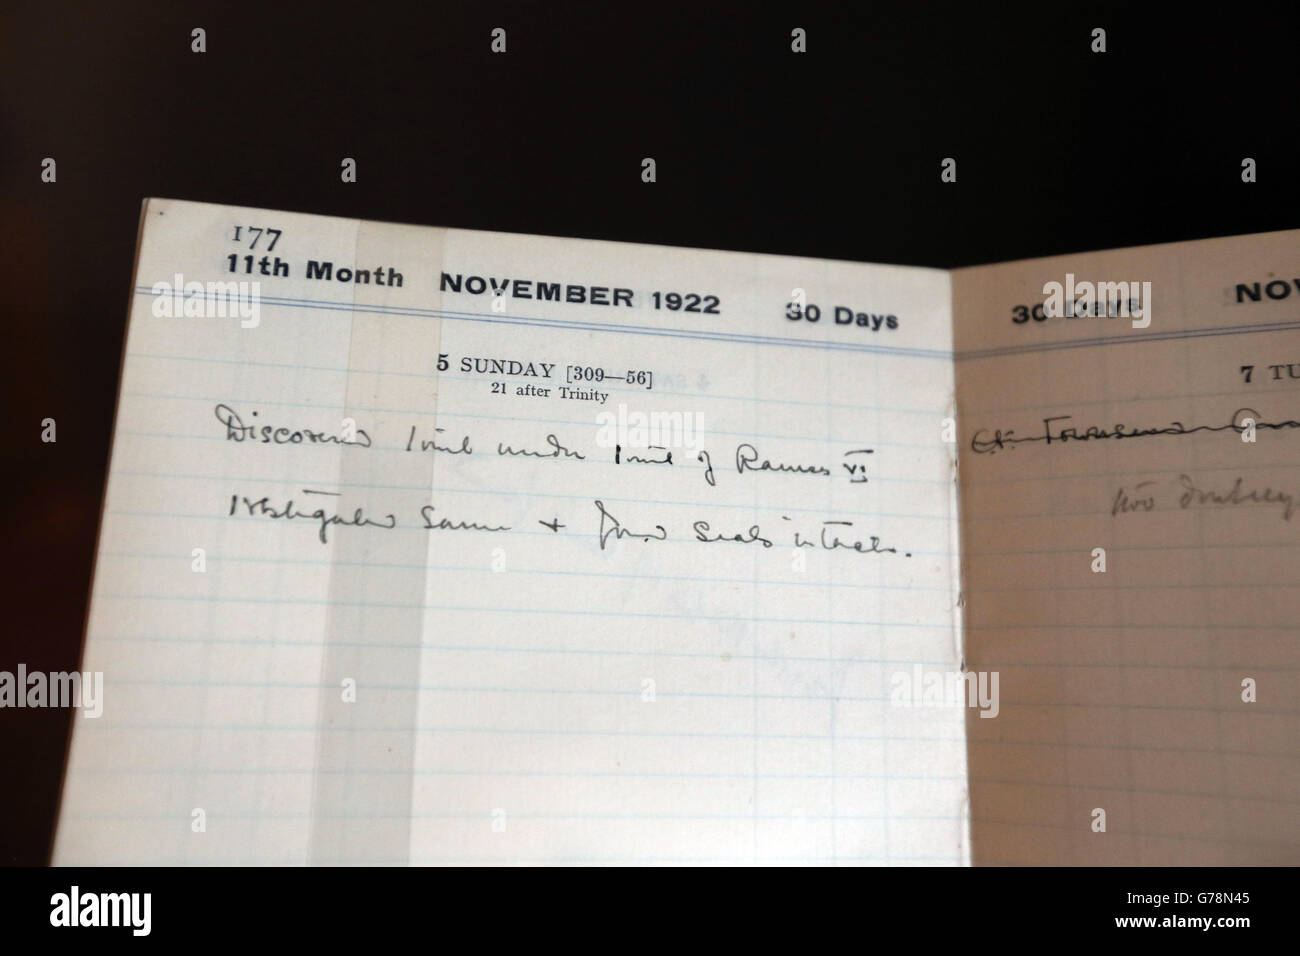 177
11th Month NOVEMBER 1922 30 Days
5 SUNDAY [309—56]
21 after Trinity
Discovered tomb under tomb of Ramses VI
Investigated same & found seals intact.
30 Days NO
7 TU
a alamy stock photo
alamy
Image ID: G78N45
www.alamy.com